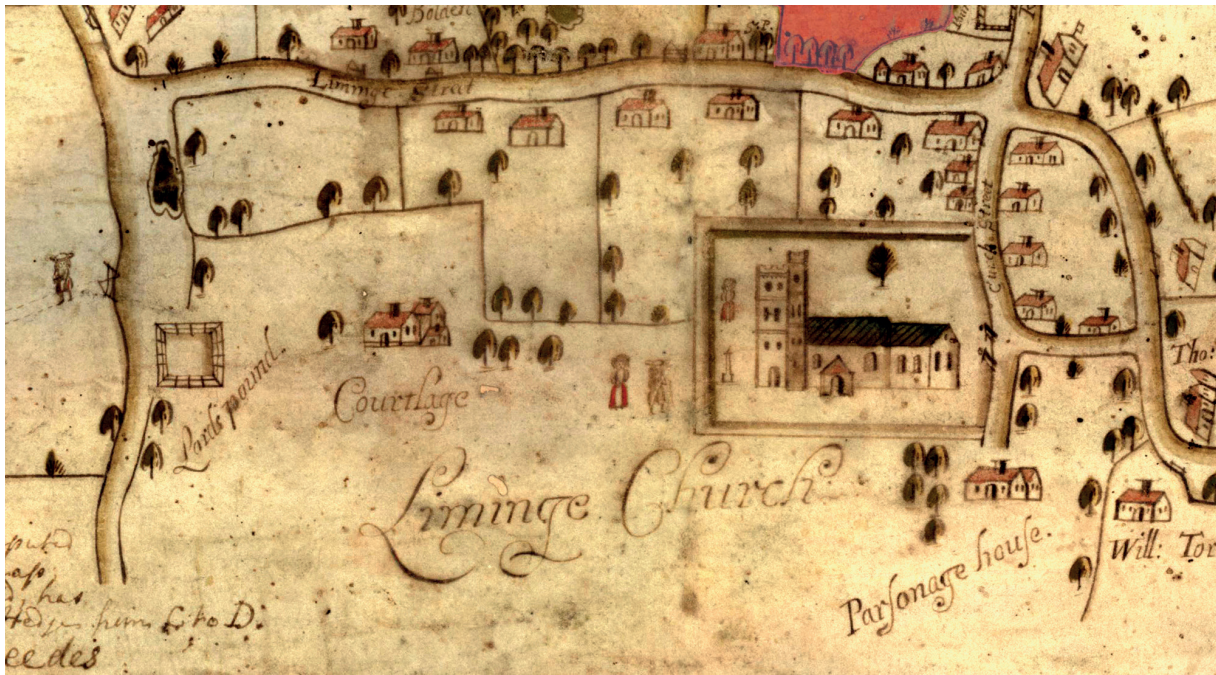 Bolden
Liminge Street
Church Street
Tho:
Lards pound.
Courtlage
Liminge Church
Parsonage house.
Will: Tor
puted
has
Hedges from C to D.
eedes